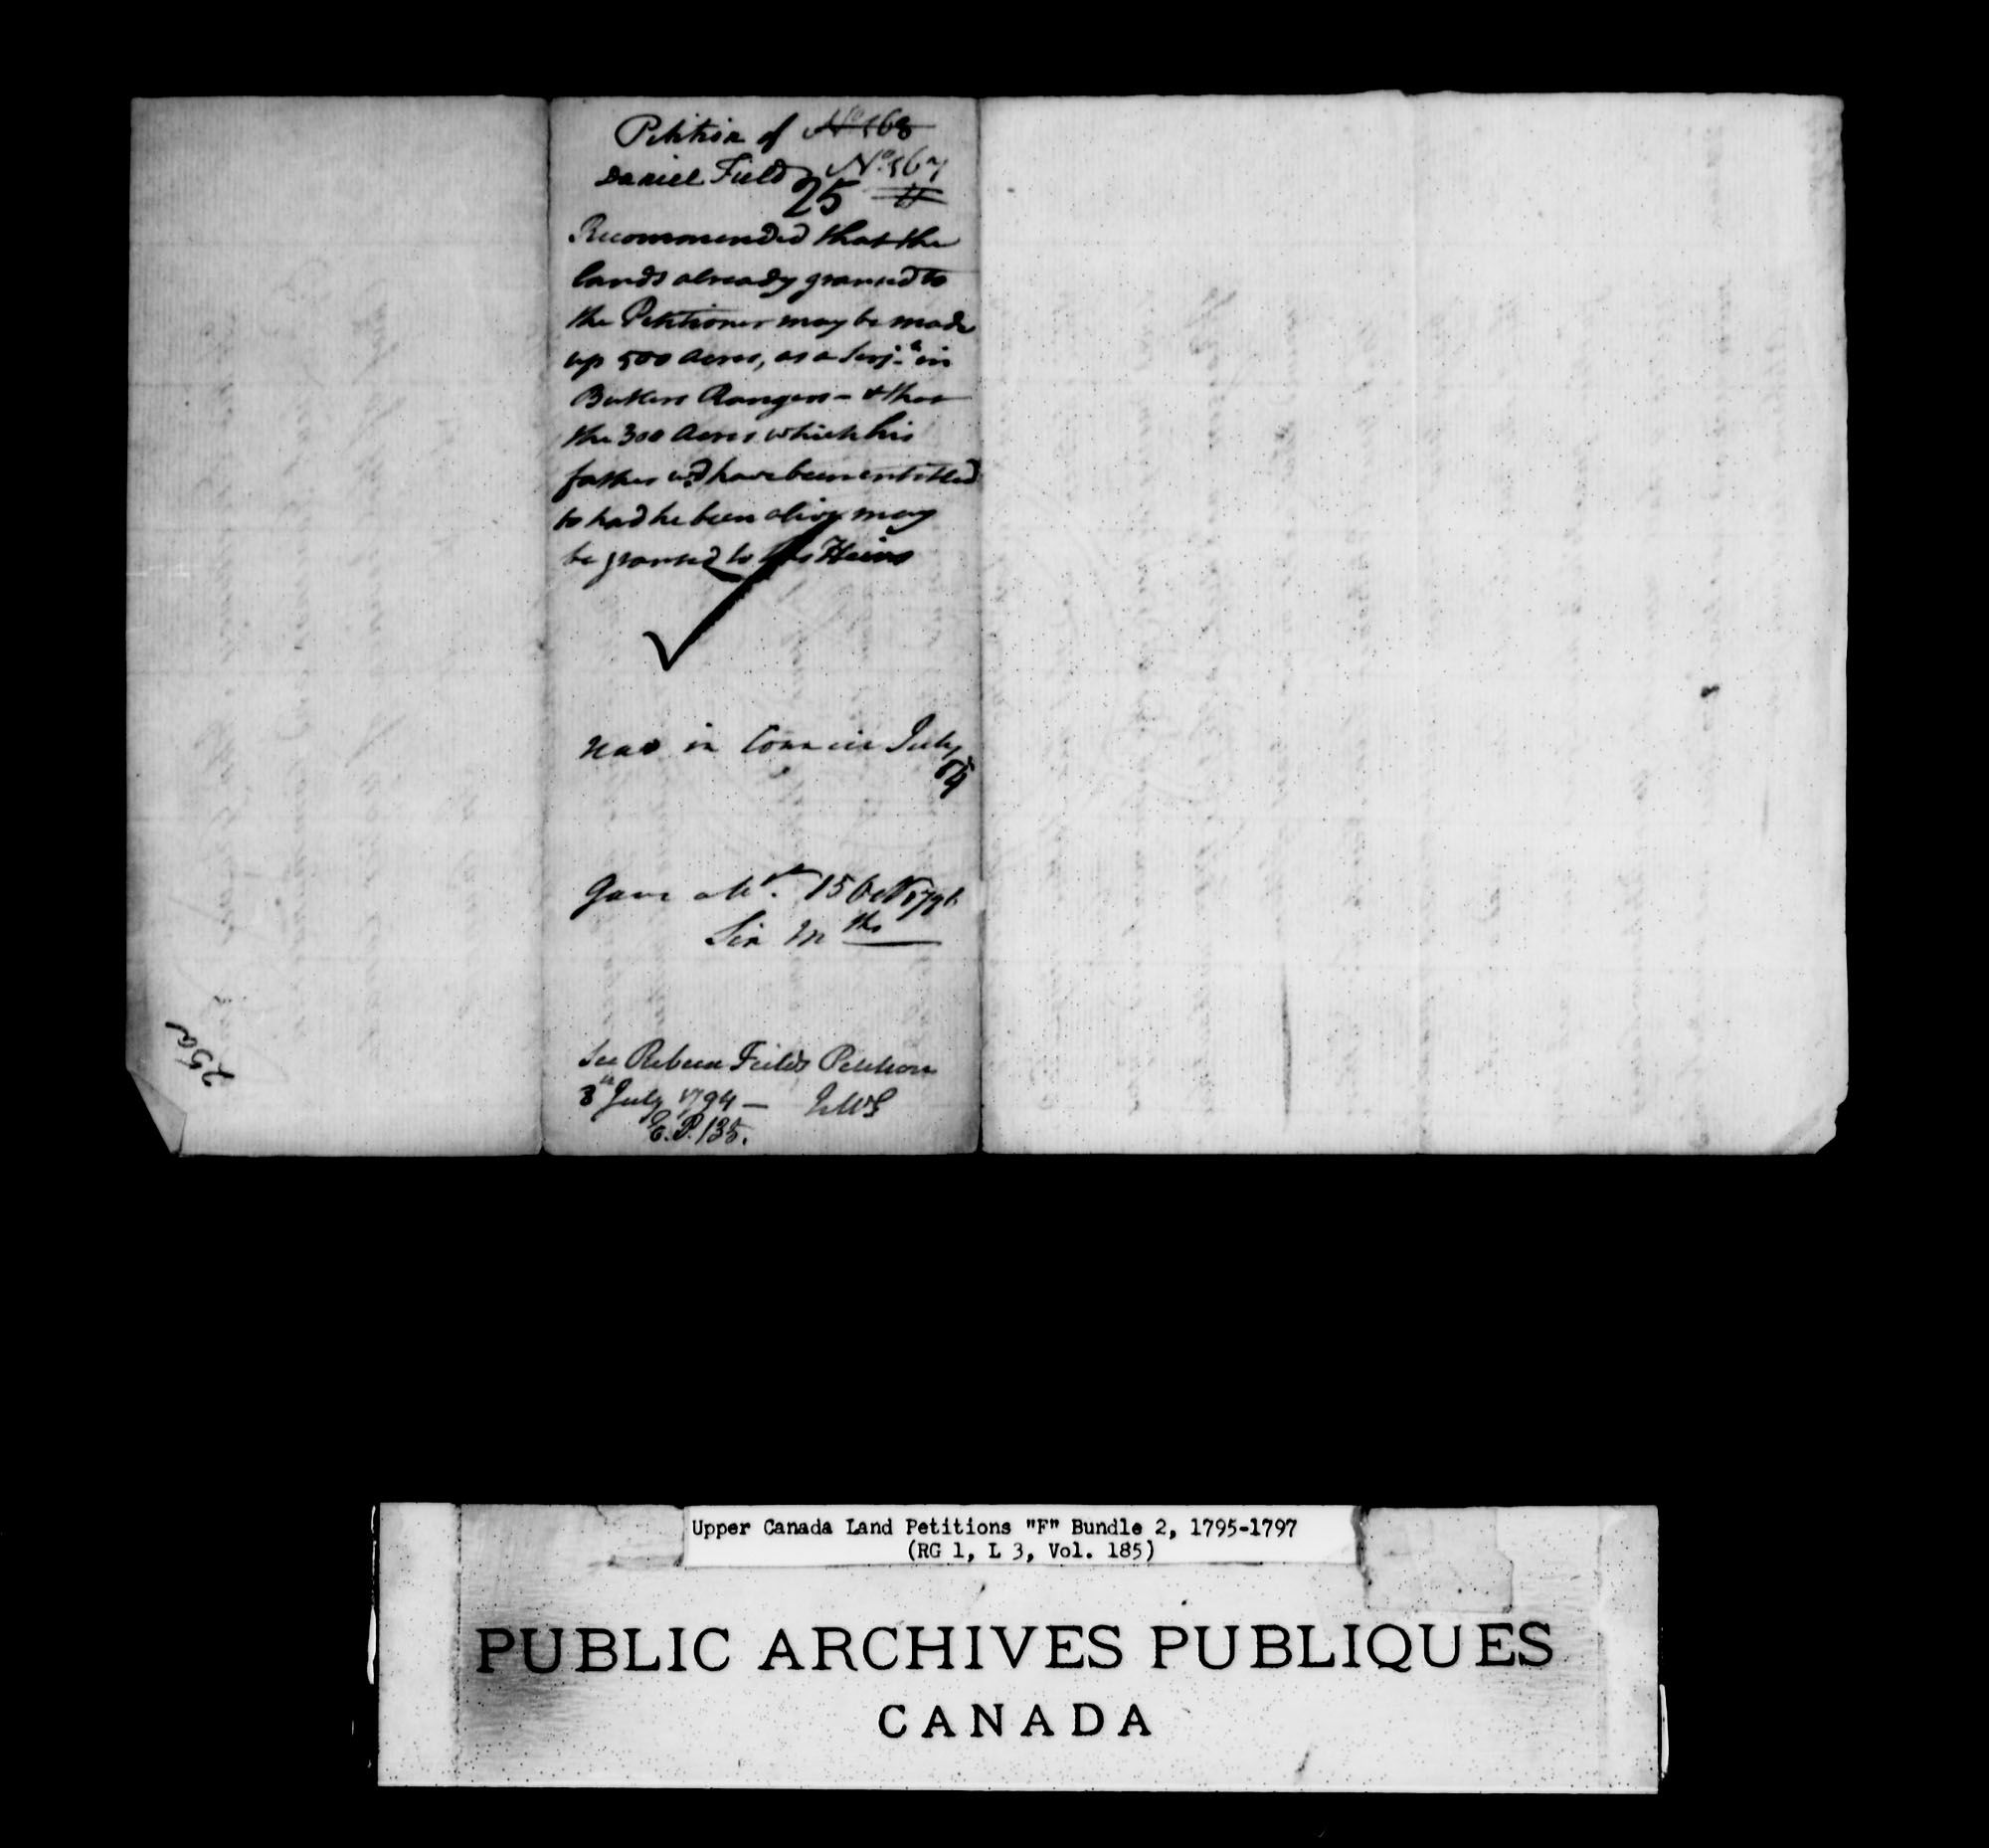 Petition of N° 168
Daniel Field N° 167
25
Recommended that the
lands already granted to
the Petitioner may be made
up 500 Acres, as a Serj.t in
Butlers Rangers - & that
the 300 Acres which his
father wd have been entitled
to had he been alive may
be granted to his Heirs
Read in Council July
Gave 15 Oct 1796
See Rebecca Fields Petition
8th July 1794 —
C.P. 135.
25a
Upper Canada Land Petitions "F" Bundle 2, 1795-1797
(RG 1, L 3, Vol. 185)
PUBLIC ARCHIVES PUBLIQUES
CANADA